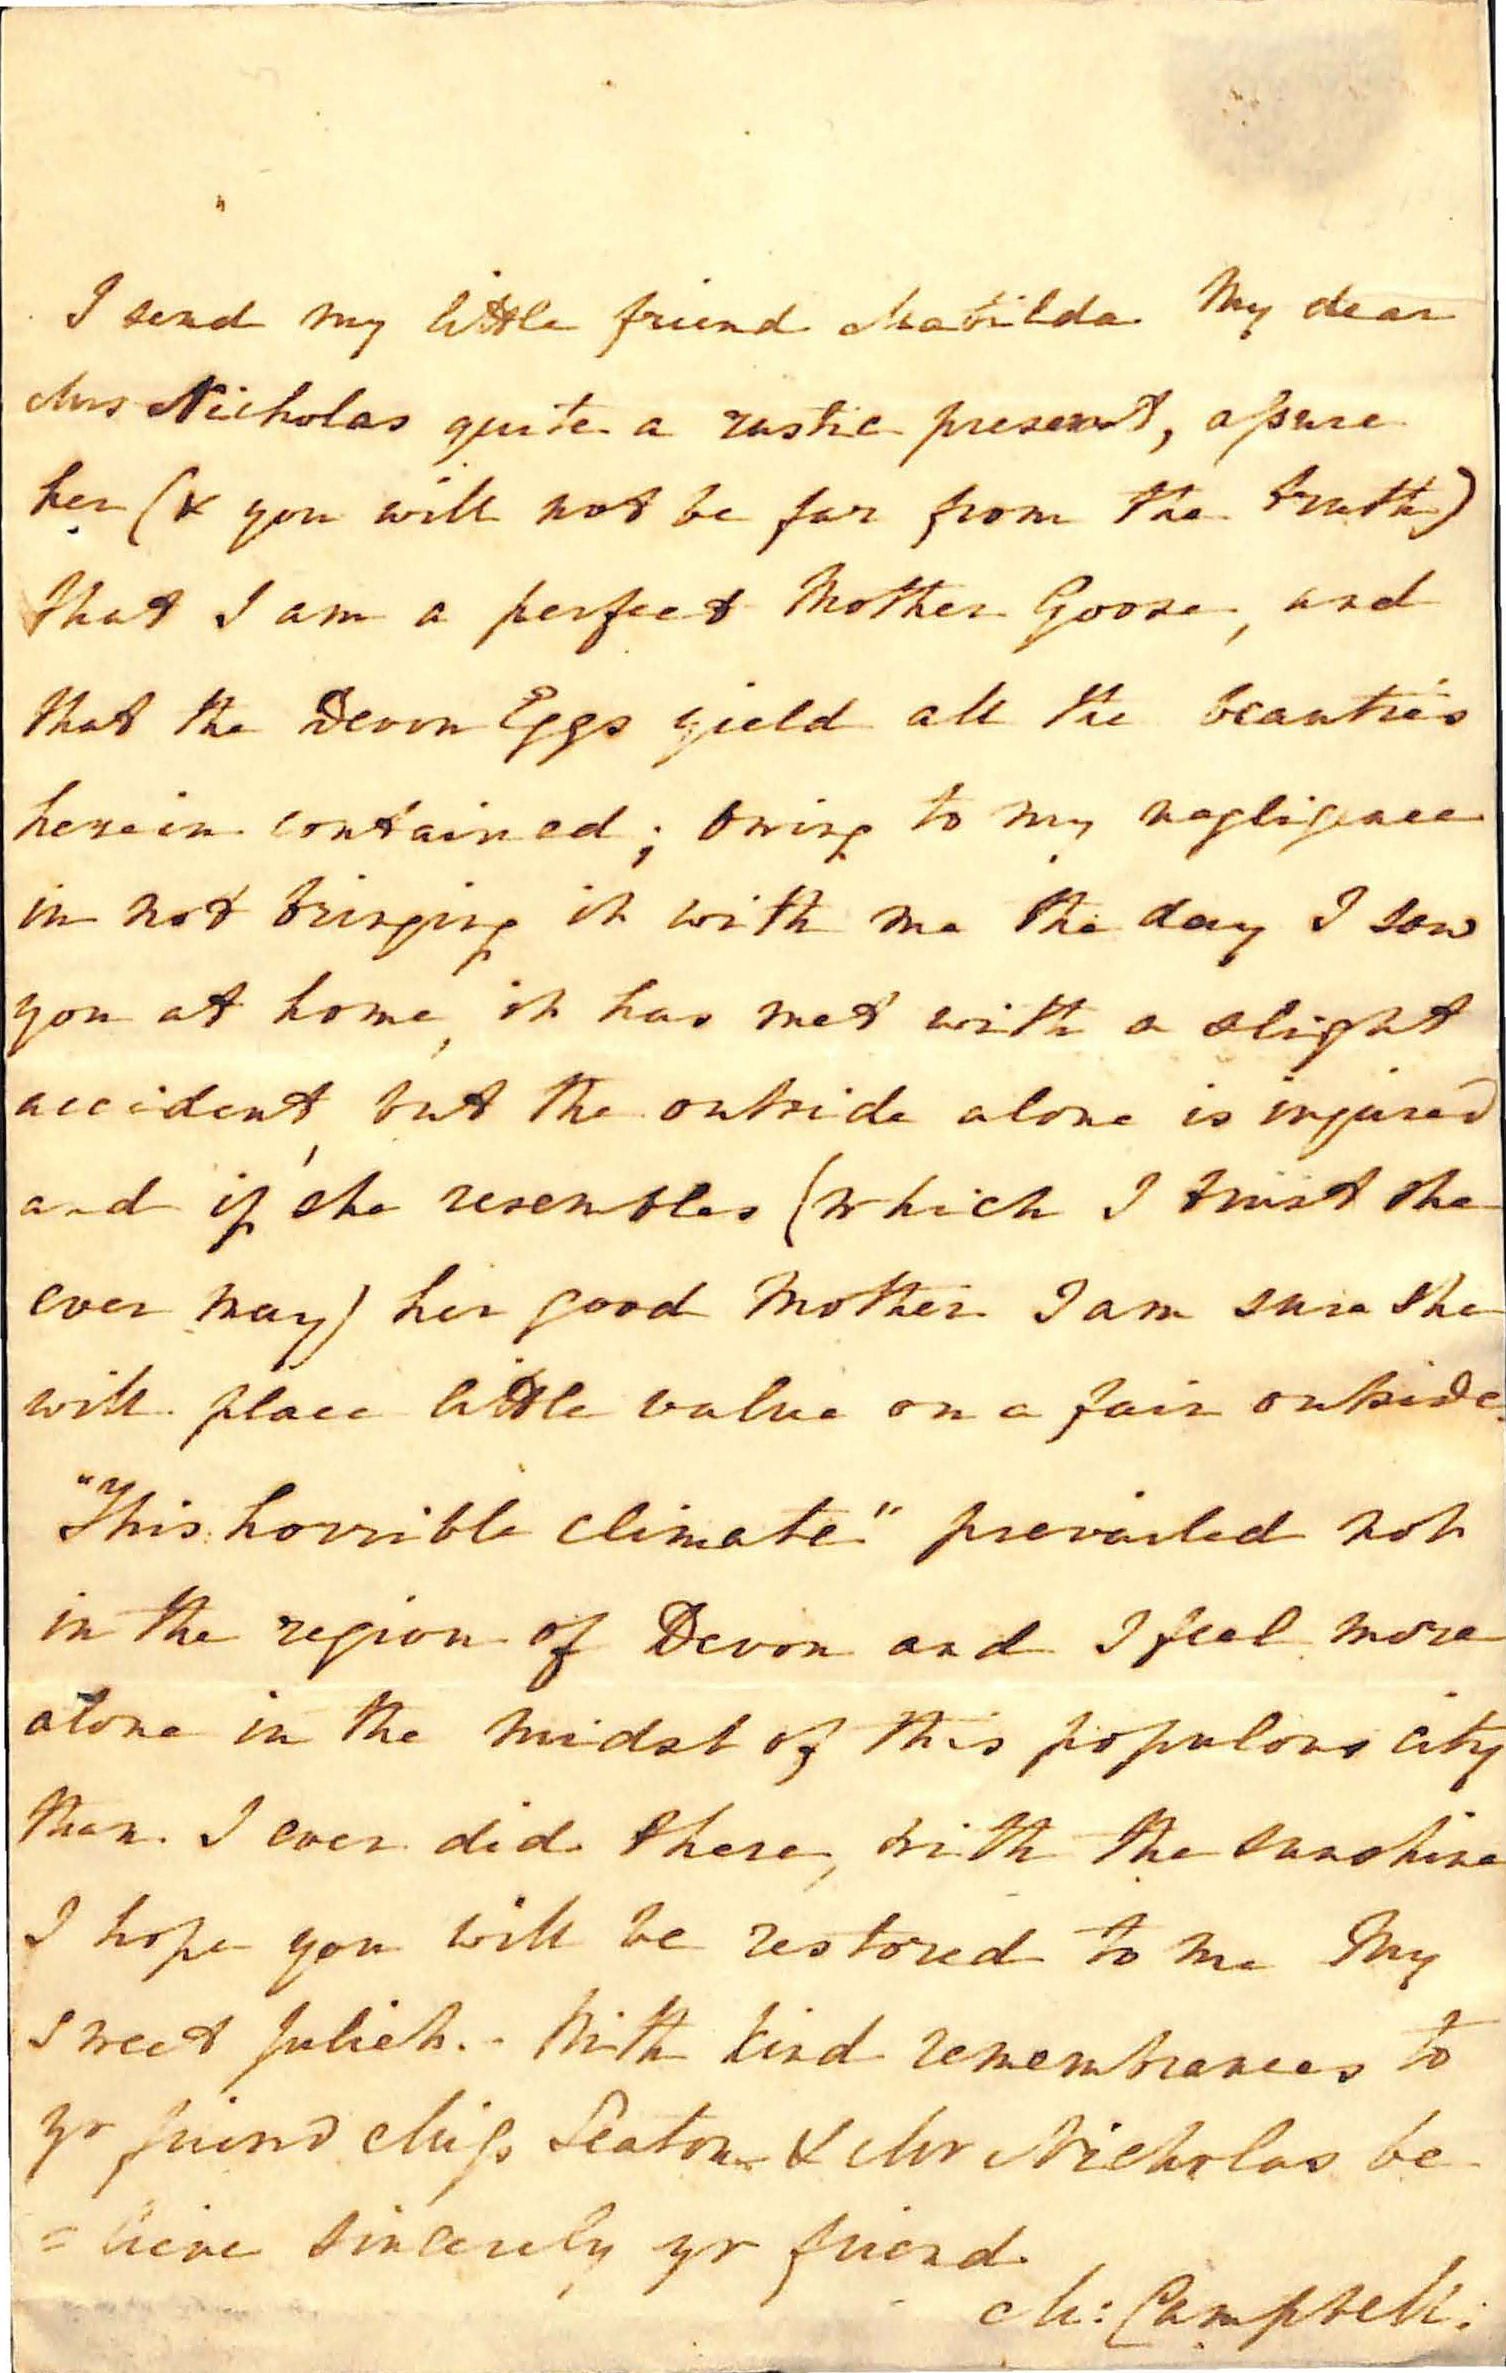 I send my little friend Matilda My dear
Mrs Nicholas quite a rustic present, assure
her (& you will not be far from the truth)
that I am a perfect Mother Goose, and
that the Devon Eggs yield all the beauties
herein contained; owing to my negligence
in not bringing it with me the day I saw
you at home, it has met with a slight
accident, but the outside alone is injured
and if she resembles (which I trust she
ever may) her good Mother I am sure she
will place little value on a fair outside.
"This horrible climate" prevailed not
in the region of Devon and I feel more
alone in the midst of this populous city
than I ever did there, with the sunshine
I hope you will be restored to me My
sweet Juliet.- With kind remembrances to
yr friend Miss Seaton & Mr Nicholas be
=lieve sincerely yr friend
M: Campbell: